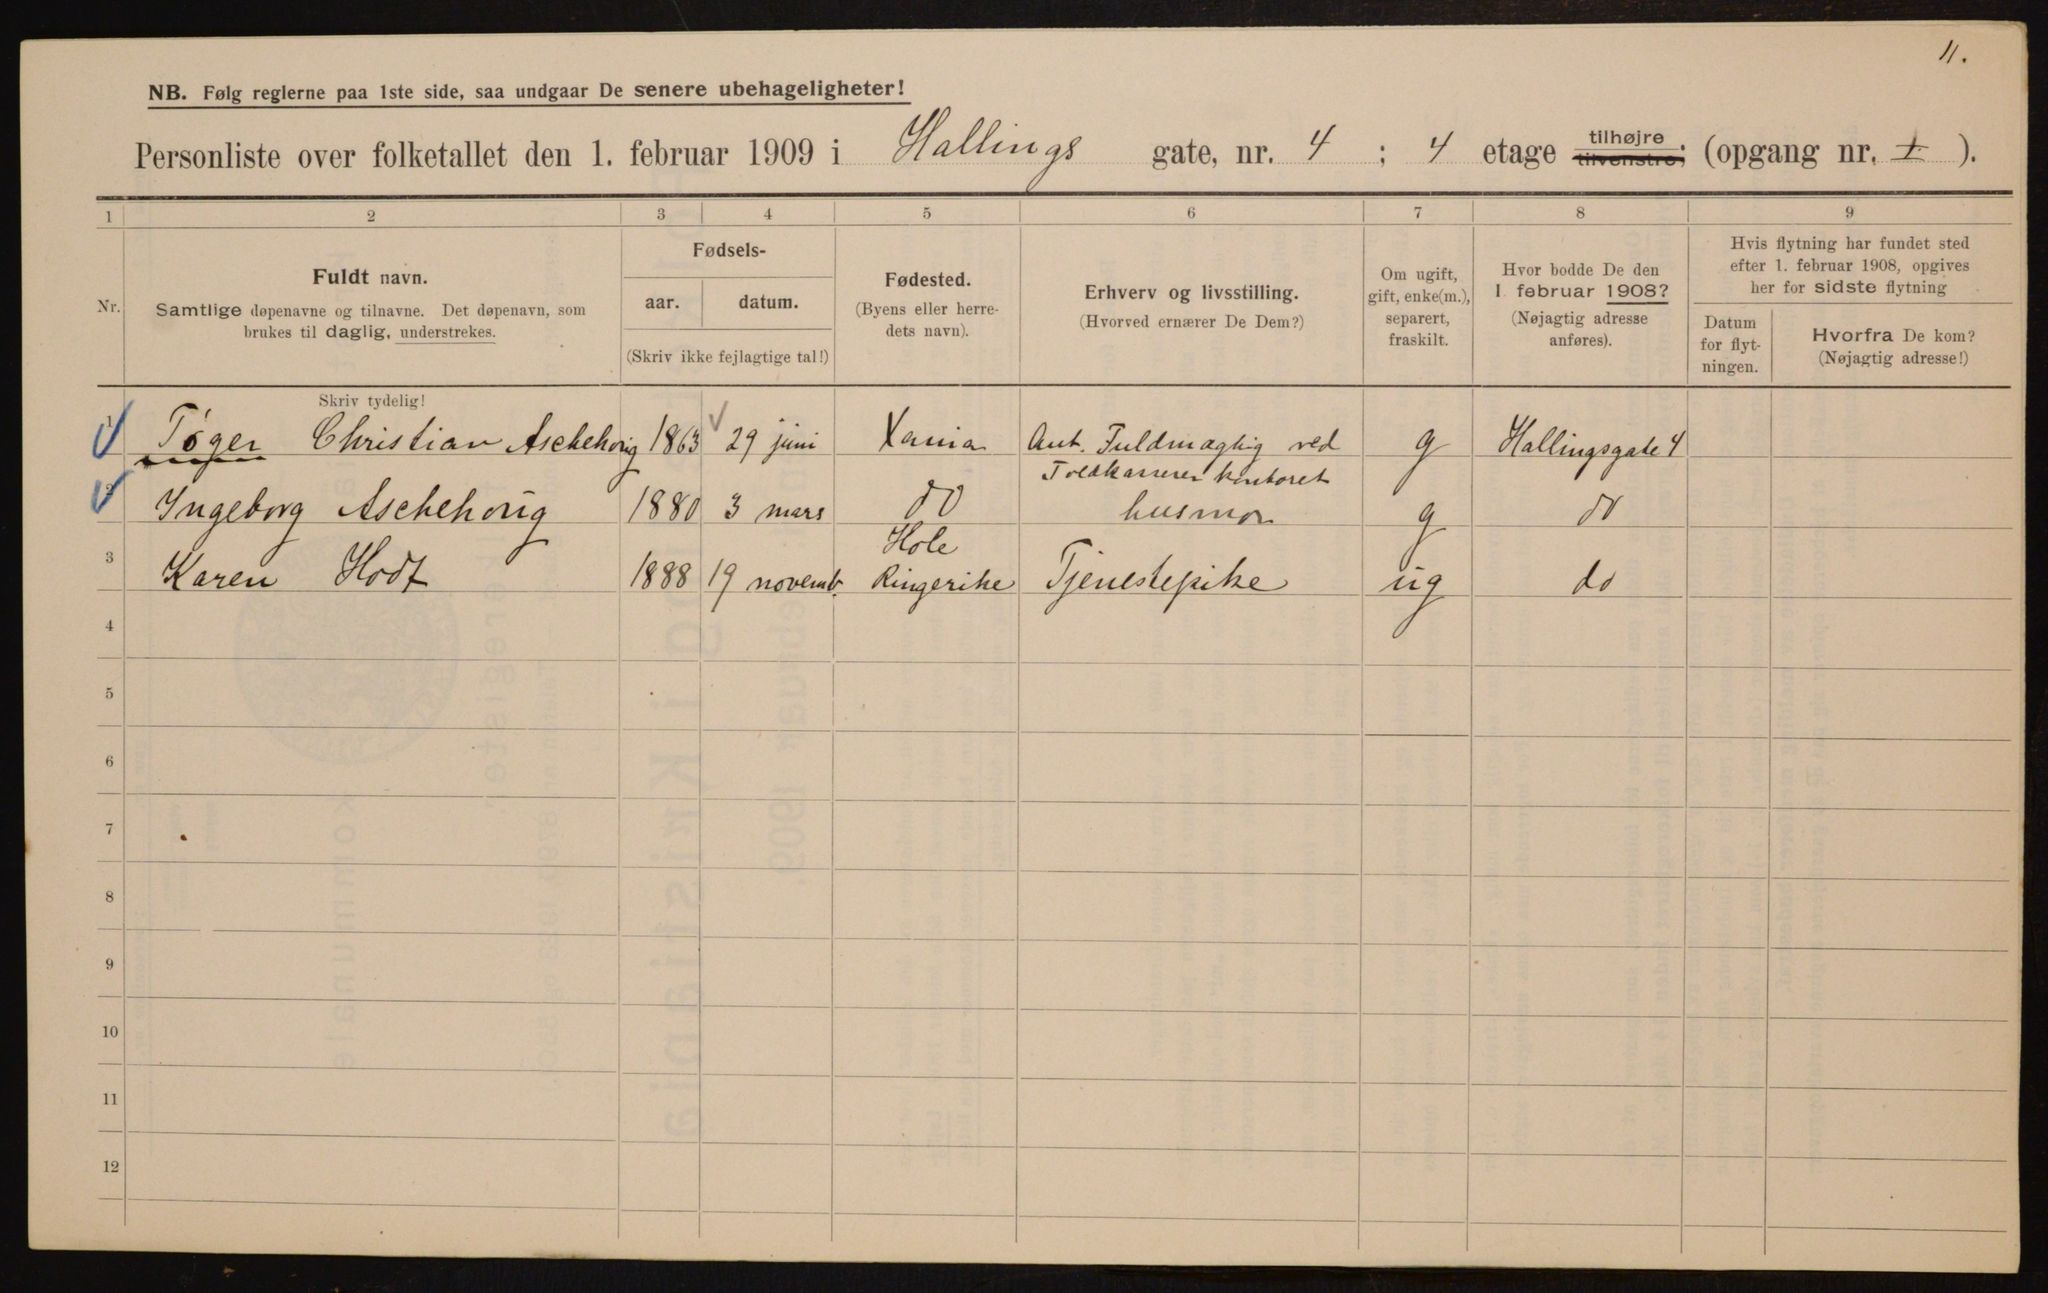 11.
NB. Følg reglerne paa 1ste side, saa undgaar De senere ubehageligheter!
Personliste over folketallet den 1. februar 1909 i Hallings gate, nr. 4 ; 4 etage tilhøjre tilvenstre; (opgang nr. 1 ).
1 2 3 4 5 6 7 8 9
Nr.
Fuldt navn.
Samtlige døpenavne og tilnavne. Det døpenavn, som
brukes til daglig, understrekes.
Skriv tydelig!
Fødsels-
aar. datum.
(Skriv ikke fejlagtige tal!)
Fødested.
(Byens eller herre-
dets navn).
Erhverv og livsstilling.
(Hvorved ernærer De Dem?)
Om ugift,
gift, enke(m.),
separert,
fraskilt.
Hvor bodde De den
1 februar 1908?
(Nøjagtig adresse
anføres).
Hvis flytning har fundet sted
efter 1. februar 1908, opgives
her for sidste flytning
Datum
for flyt-
ningen.
Hvorfra De kom?
(Nøjagtig adresse!)
1 Tøger Christian Aschehoug 1863 29 juni Xania Ant. Fuldmægtig ved g Hallingsgate 4
Toldkasserer kontoret
2 Ingeborg Aschehoug 1880 3 mars do husmor g do
Hole
3 Karen Hodt 1888 19 novemb. Ringerike Tjenestepike ug do
4
5
6
7
8
9
10
11
12